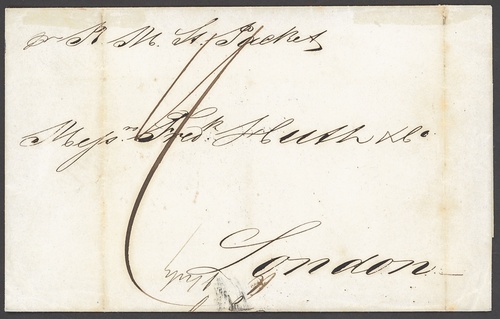 pr R. M. St. Packet
Messrs. Fredk. Huth & Co
London